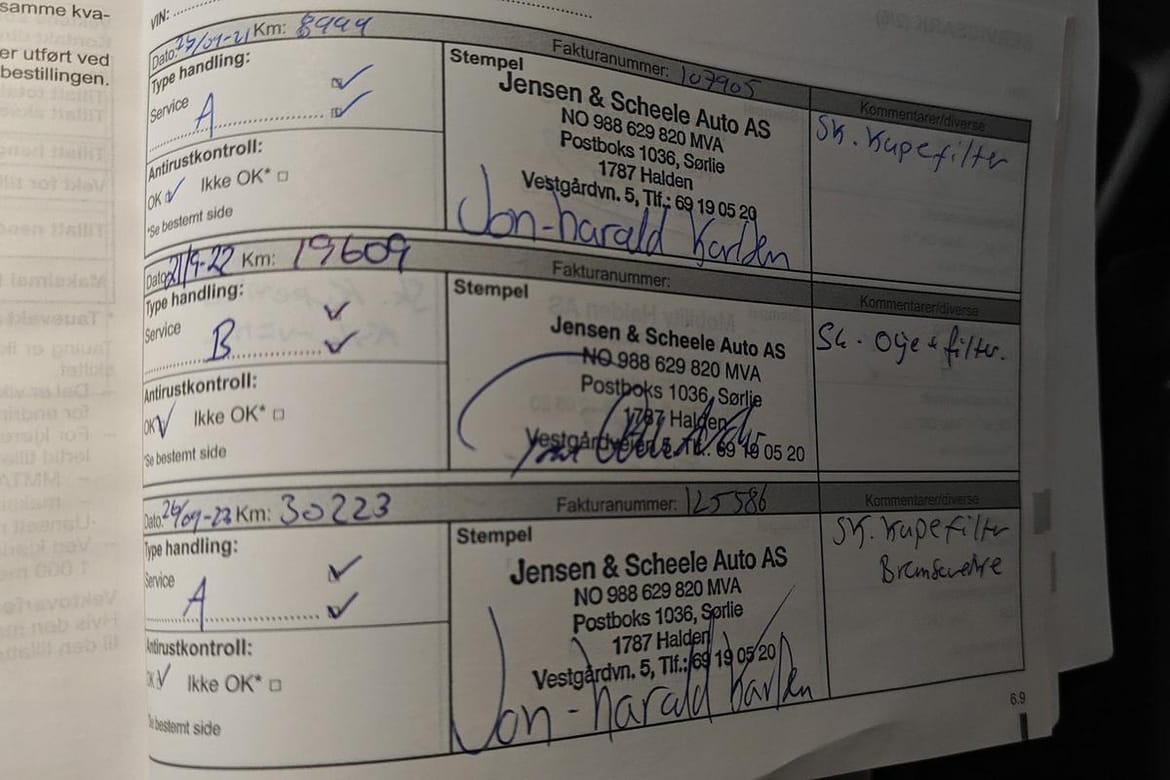 samme kva-
er utført ved
bestillingen.
VIN:
Km: 8999
Fakturanummer: 107905
Kommentarer/diverse
Type handling:
Service A
Antirustkontroll:
OK Ikke OK*
*Se bestemt side
Stempel
Jensen & Scheele Auto AS
NO 988 629 820 MVA
Postboks 1036, Sørlie
1787 Halden
Vestgårdvn. 5, Tlf.: 69 19 05 20
Jon-harald Karlsen
Sk. Kupefilter
Dato: 21/9-22 Km: 19609
Fakturanummer:
Kommentarer/diverse
Type handling:
Service B
Antirustkontroll:
OK Ikke OK*
*Se bestemt side
Stempel
Jensen & Scheele Auto AS
NO 988 629 820 MVA
Postboks 1036, Sørlie
1787 Halden
Vestgårdveien 5, Tlf.: 69 19 05 20
Sk. Olje + filter.
Dato: 26/09-23 Km: 30223
Fakturanummer: 125586
Kommentarer/diverse
Type handling:
Service A
Antirustkontroll:
OK Ikke OK*
*Se bestemt side
Stempel
Jensen & Scheele Auto AS
NO 988 629 820 MVA
Postboks 1036, Sørlie
1787 Halden
Vestgårdvn. 5, Tlf.: 69 19 05 20
Jon-harald Karlsen
SK. Kupefilter
Bremsevæske
6.9